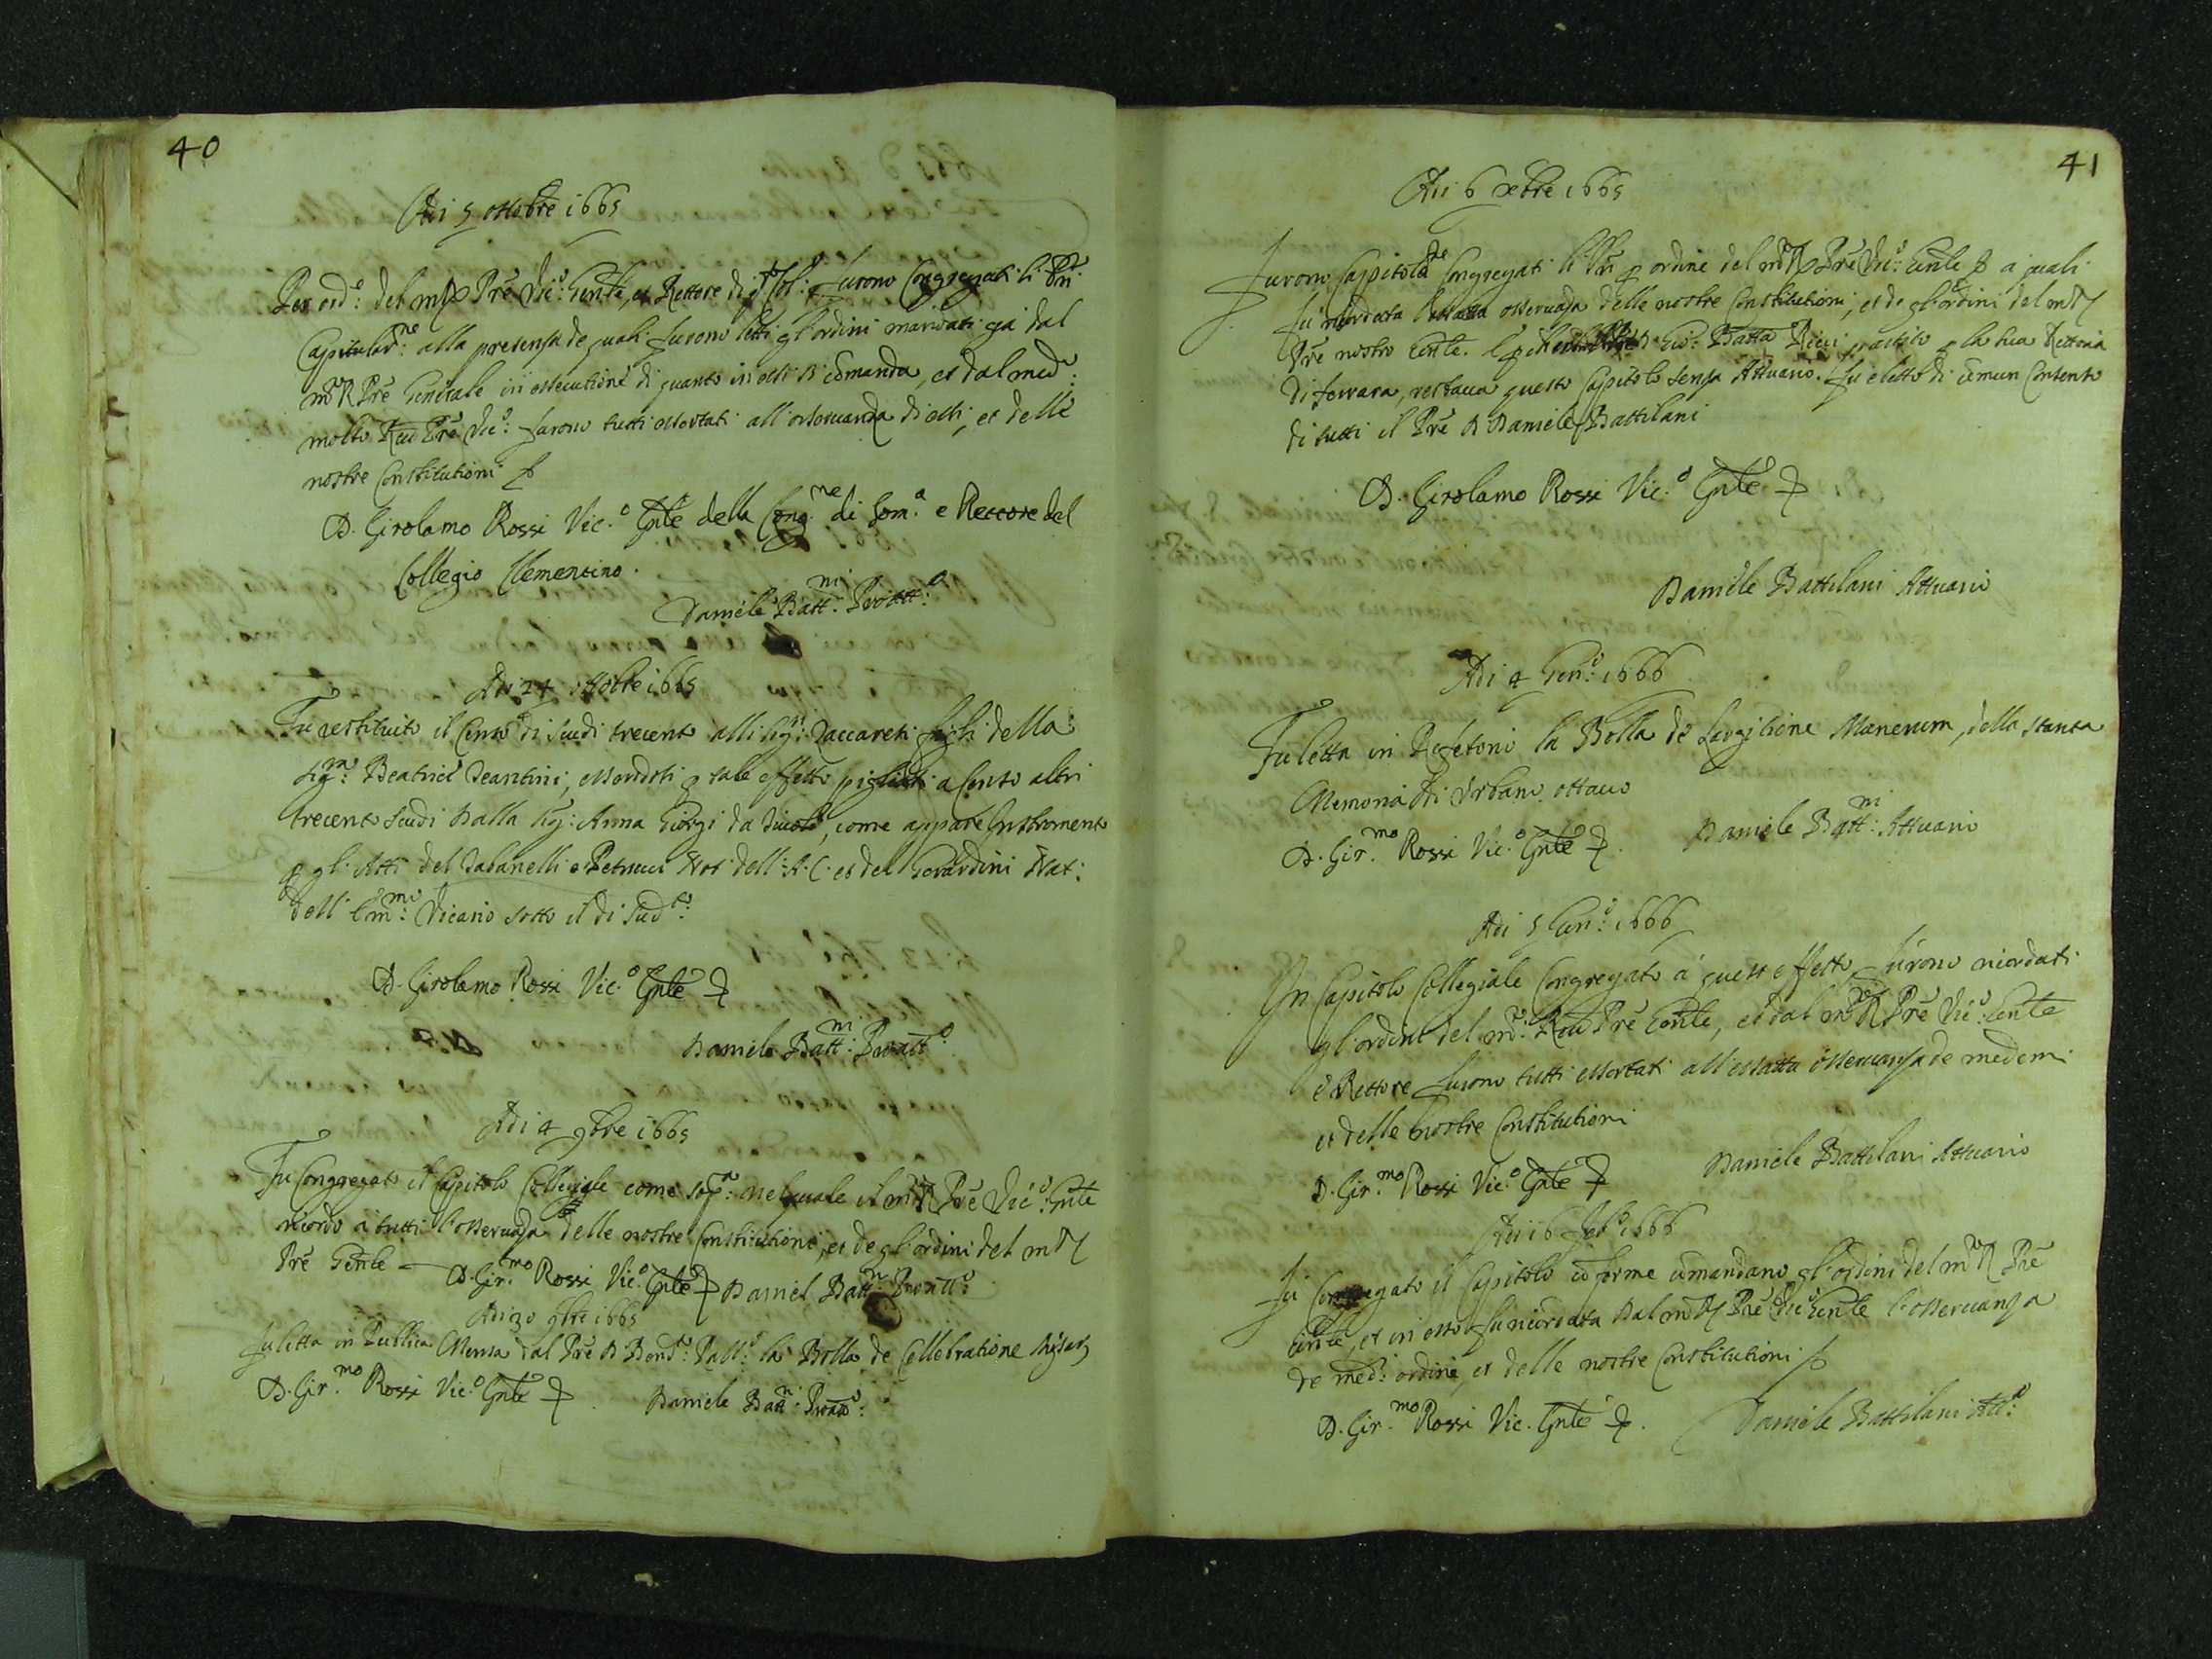 40
Adi 5 ottobre 1665
Per ord.e del m R Prē Vic.o Gen̄le, et Rettore di q.to Col.o furono Congregati li Prī
Capitular.ne alla presenza de quali furono letti gl'ordini mandati gia dal
m.to R Prē Generale in essecutione di quanto in essi si comanda, et dal med.o
molto Reu Prē Vic.o furono tutti essortati all'osseruanza di essi, et delle
nostre Constitutioni
D. Girolamo Rossi Vic.o Gn̄le della Cong.ne di Som.a e Rettore del
Collegio Clementino.
Daniele Batt.ni Proatt.o
Adi 24 ottobre 1665
Fu restituito il Censo di Scudi trecento alli Sig.ri Zaccareti figli della
Sig.ra Beatrice , essendosi p tale effetto pigliati a Censo altri
trecento Scudi dalla Sig: Anna Giorgi da , come appare Instromento
p gl'Atti del e Petrucci Not dell'A.C. et del Gerardini Not:
dell'Em.mo Vicario sotto il di sud.o
D. Girolamo Rossi Vic.o Gn̄le
Daniele Batt.ni Proatt.o
Adi 4 9bre 1665
Fu Congregato il Capitolo Collegiale come sop.a nel quale il m.to R Prē Vic.o Gn̄le
ricordo a tutti l'osseruanza delle nostre Constitutioni, et de gl'ordini del m.to R
Prē Gen̄le D. Gir.mo Rossi Vic.o Gn̄le Daniel Batt.ni Proatt.o
Adi 30 9bre 1665
Fu letta in Publica Mensa dal Prē D la Bolla de Cellebratione Missarū
D. Gir.mo Rossi Vic.o Gn̄le Daniele Batt.ni Proatt.o
41
Adi 6 Xbre 1665
Furono Capitolar.ne Congregati li Prī p ordine del m.to R Prē Vic.o Gen̄le a quali
fu ricordata l'essatta osseruanza delle nostre Constitutioni, et de gl'ordini del m.to R
Prē nostro Gen̄le. E p che Gio: Batta Ricci partito p la sua Rettoria
di Ferrara, restaua questo Capitolo senza Attuario. fu eletto di comun Consento
di tutti il Prē D Daniele Battilani
D. Girolamo Rossi Vic.o Gn̄le
Daniele Battilani Attuario
Adi 4 Gen.o 1666
Fu letta in Refetorio la Bolla de Largitione Munerum, della Santa
Memoria di Urbano ottauo
D. Gir.mo Rossi Vic.o Gn̄le . Daniele Batt.ni Attuario
Adi 5 Gen.o 1666
In Capitolo Collegiale Congregato à quest effetto furono ricordati
gl'ordini del m.to Reu Prē Gen̄le, et dal m.to R Prē Vic.o Gen̄le
e Rettore furono tutti essortati all'essatta osseruanza de medemi
et delle nostre Constitutioni
D. Gir.mo Rossi Vic.o Gn̄le Daniele Battilani Attuario
Adi 16 Feb.o 1666
Fu Congregato il Capitolo cō forme comandano gl'ordini del m.to R Prē
Gen̄le, et in esso fu ricordata dal m.to R Prē Vic.o Gen̄le l'osseruanza
de med.i ordini, et delle nostre Constitutioni
D. Gir.mo Rossi Vic. Gn̄le . Daniele Battilani Att.o